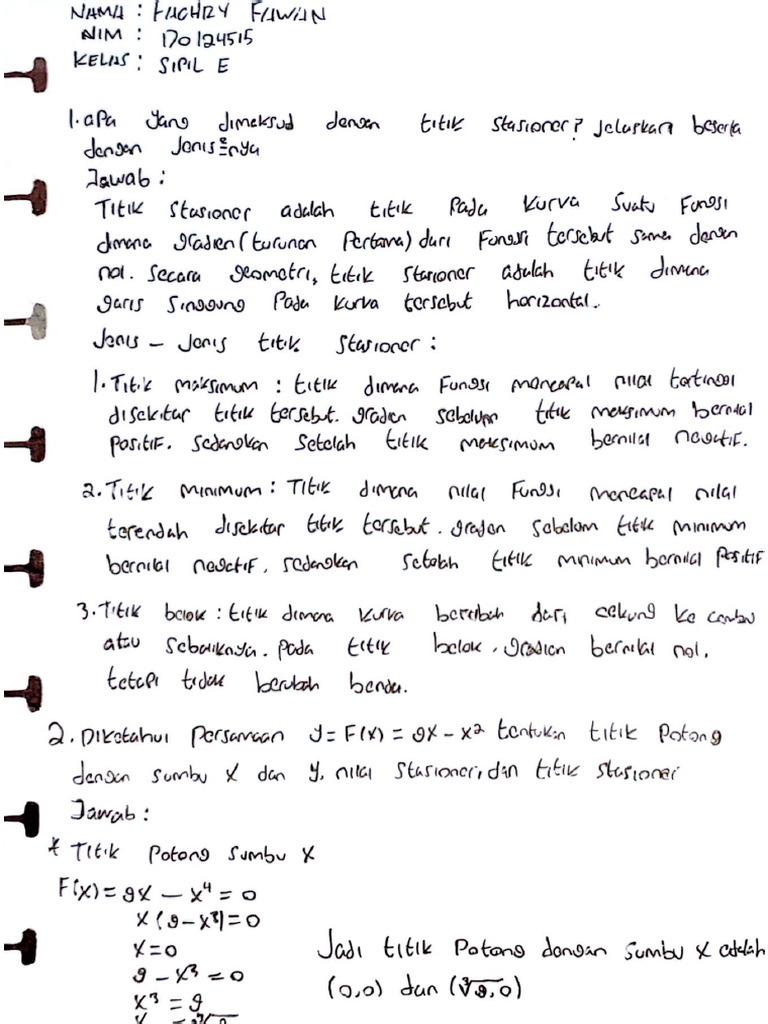 NAMA : FACHRY FAWIAN
NIM : 170124515
KELAS : SIPIL E
1. apa yang dimaksud dengan titik stasioner? Jelaskan beserta
dengan Jenis²nya
Jawab :
Titik stasioner adalah titik Pada kurva suatu Fungsi
dimana gradien (turunan Pertama) dari Fungsi tersebut sama dengan
nol. Secara geometri, titik stasioner adalah titik dimana
garis Singgung Pada kurva tersebut horizontal.
Jenis - Jenis titik Stasioner :
1. Titik maksimum : titik dimana Fungsi mencapai nilai tertinggi
disekitar titik tersebut. gradien sebelum titik maksimum bernilai
Positif. sedangkan setelah titik maksimum bernilai negatif.
2. Titik minimum : Titik dimana nilai Fungsi mencapai nilai
terendah disekitar titik tersebut. gradien sebelum titik minimum
bernilai negatif, sedangkan setelah titik minimum bernilai Positif
3. Titik belok : titik dimana kurva berubah dari cekung ke cembu
atau sebaliknya. Pada titik belok, gradien bernilai nol,
tetapi tidak berubah tanda.
2. Diketahui Persamaan y = F(x) = 9x - x² tentukan titik Potong
dengan sumbu x dan y, nilai stasioner, dan titik stasioner
Jawab :
* Titik Potong Sumbu X
F(x) = 9x - x⁴ = 0
x (9 - x³) = 0
x = 0
9 - x³ = 0
x³ = 9
Jadi titik Potong dengan sumbu x adalah
(0,0) dan (∛9,0)